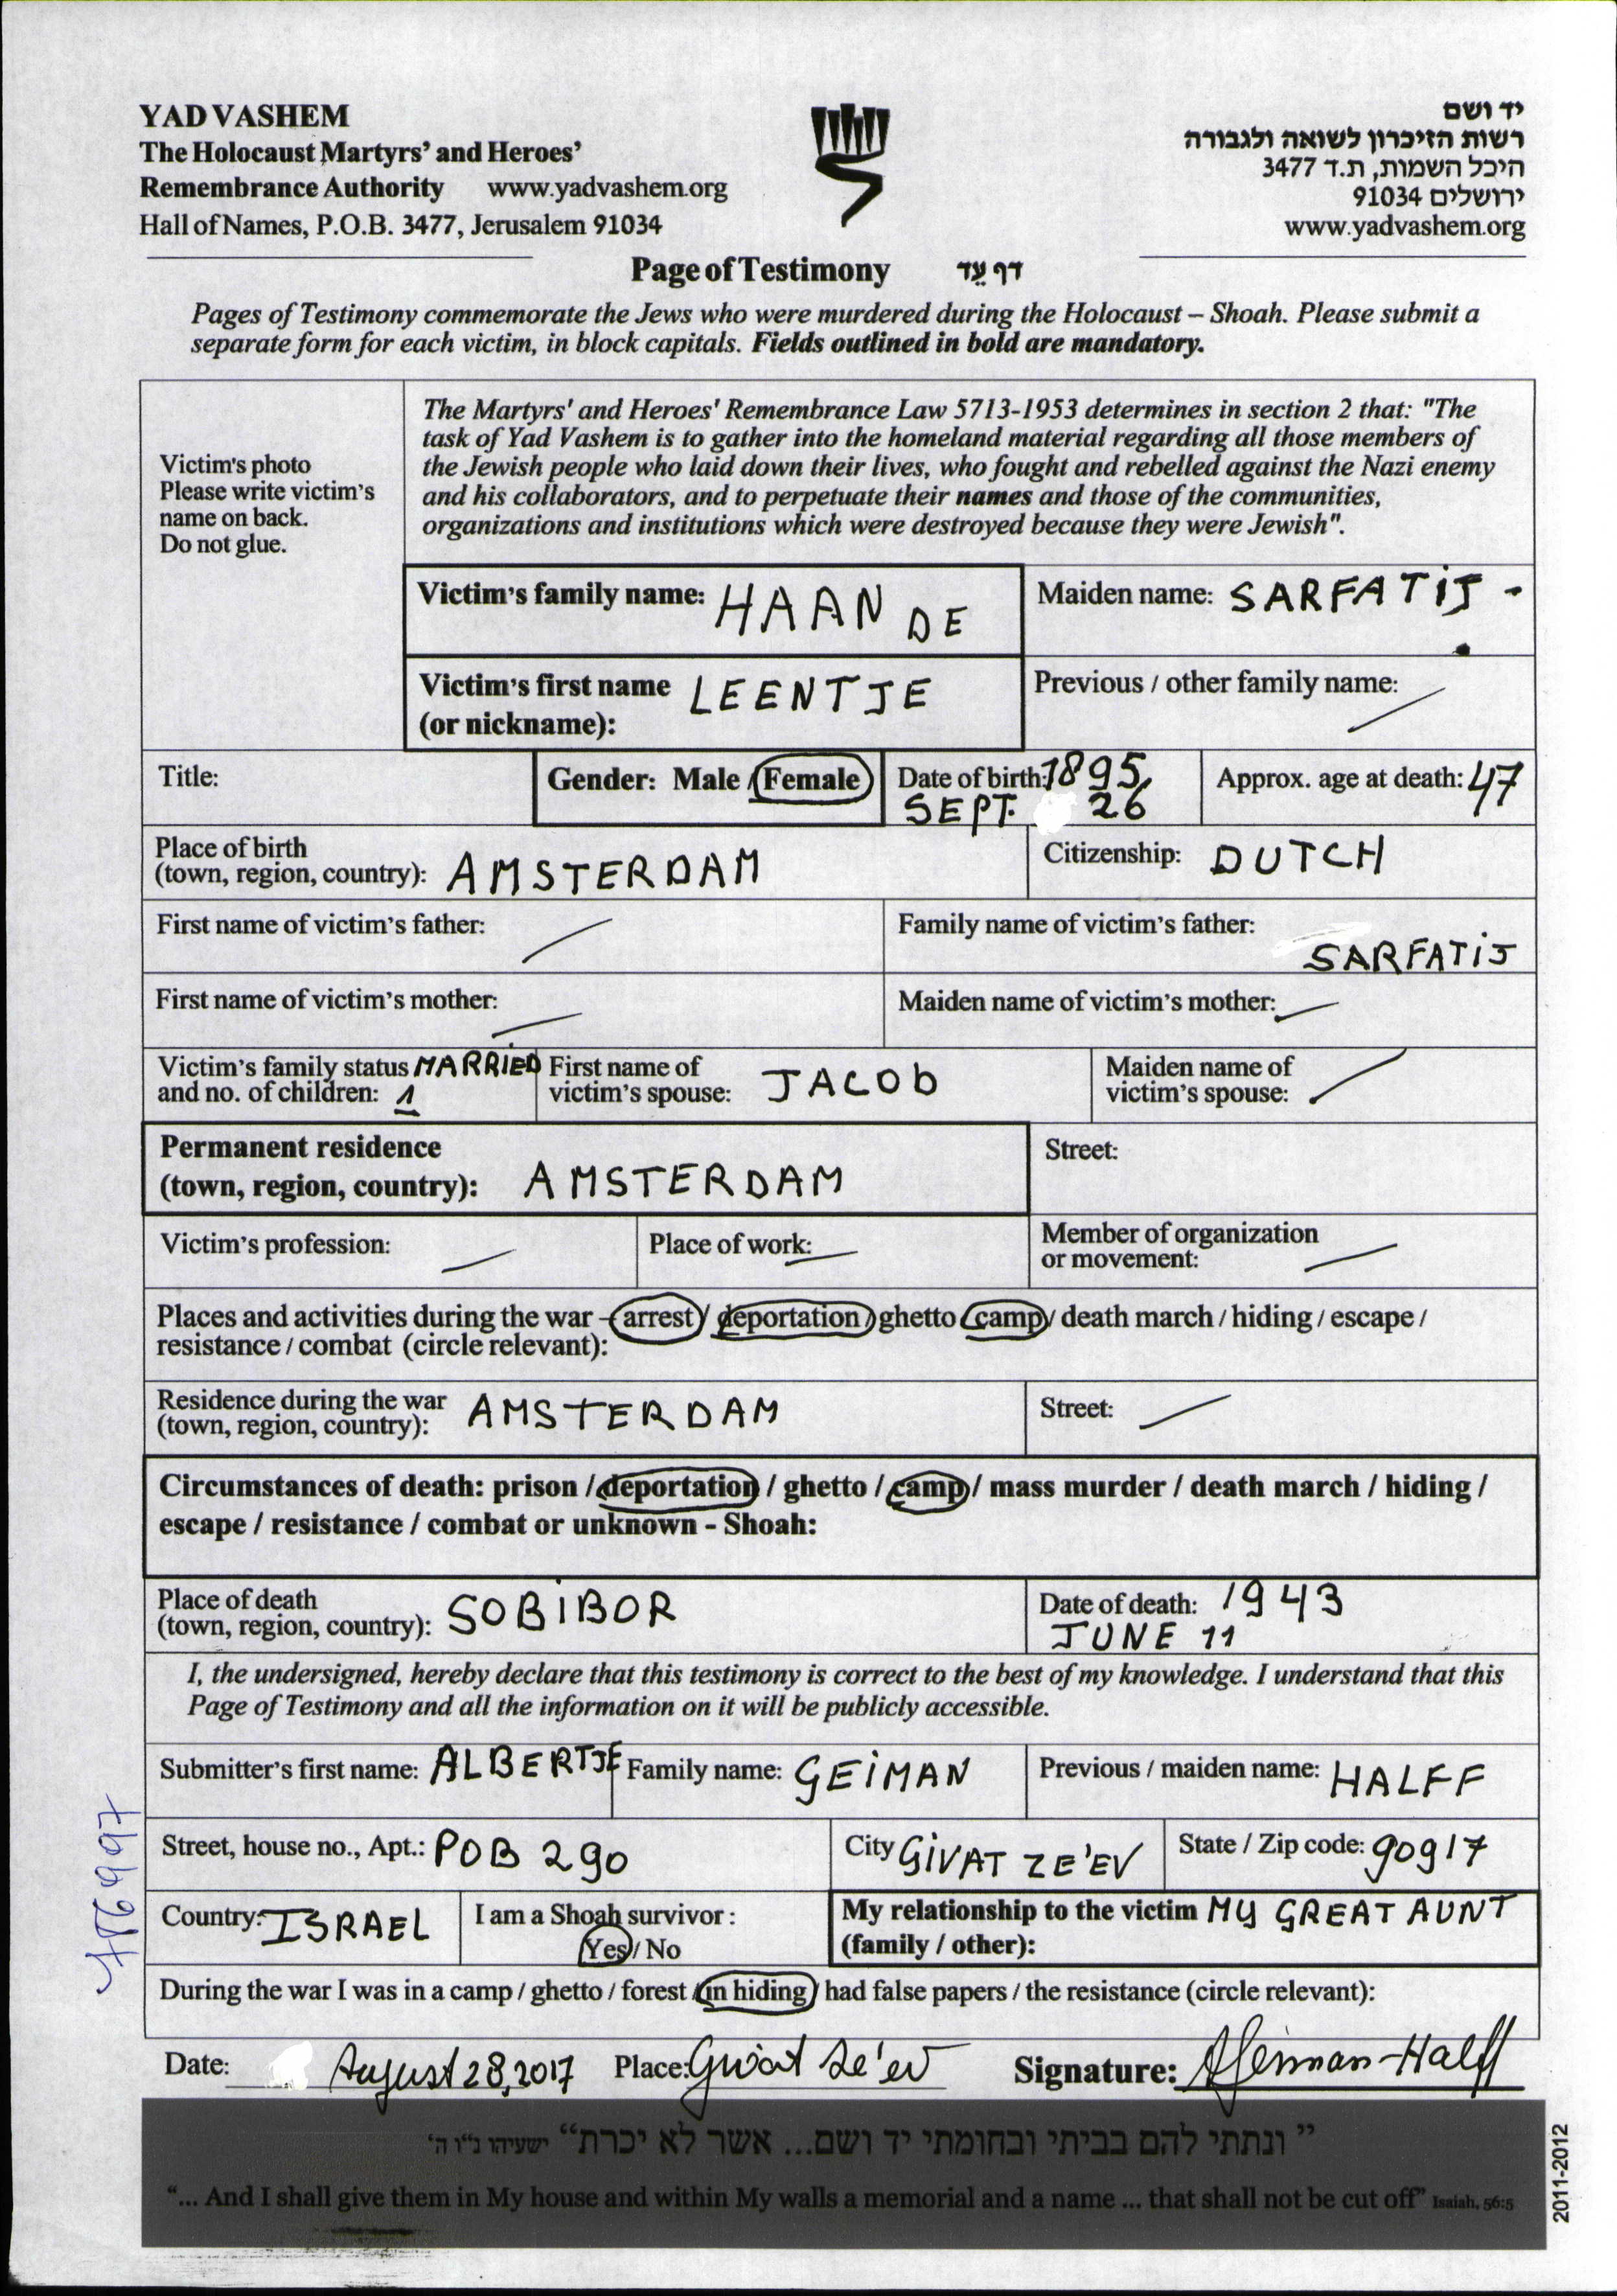 YAD VASHEM
The Holocaust Martyrs' and Heroes'
Remembrance Authority www.yadvashem.org
Hall of Names, P.O.B. 3477, Jerusalem 91034
יד ושם
רשות הזיכרון לשואה ולגבורה
היכל השמות, ת.ד 3477
ירושלים 91034
www.yadvashem.org
Page of Testimony דף עֵד
Pages of Testimony commemorate the Jews who were murdered during the Holocaust – Shoah. Please submit a
separate form for each victim, in block capitals. Fields outlined in bold are mandatory.
Victim's photo
Please write victim's
name on back.
Do not glue.
The Martyrs' and Heroes' Remembrance Law 5713-1953 determines in section 2 that: "The
task of Yad Vashem is to gather into the homeland material regarding all those members of
the Jewish people who laid down their lives, who fought and rebelled against the Nazi enemy
and his collaborators, and to perpetuate their names and those of the communities,
organizations and institutions which were destroyed because they were Jewish".
Victim's family name: HAAN DE Maiden name: SARFATIJ -
Victim's first name LEENTJE Previous / other family name:
(or nickname):
Title: Gender: Male / Female Date of birth: 1895, Approx. age at death: 47
SEPT. 26
Place of birth
(town, region, country): AMSTERDAM Citizenship: DUTCH
First name of victim's father: Family name of victim's father:
SARFATIJ
First name of victim's mother: Maiden name of victim's mother:
Victim's family status MARRIED First name of Maiden name of
and no. of children: 1 victim's spouse: JACOb victim's spouse:
Permanent residence Street:
(town, region, country): AMSTERDAM
Victim's profession: Place of work: Member of organization
or movement:
Places and activities during the war – arrest / deportation / ghetto / camp / death march / hiding / escape /
resistance / combat (circle relevant):
Residence during the war
(town, region, country): AMSTERDAM Street:
Circumstances of death: prison / deportation / ghetto / camp / mass murder / death march / hiding /
escape / resistance / combat or unknown - Shoah:
Place of death Date of death: 1943
(town, region, country): SOBIBOR JUNE 11
I, the undersigned, hereby declare that this testimony is correct to the best of my knowledge. I understand that this
Page of Testimony and all the information on it will be publicly accessible.
Submitter's first name: ALBERTJE Family name: GEIMAN Previous / maiden name: HALFF
Street, house no., Apt.: POB 290 City GIVAT ZE'EV State / Zip code: 90917
Country: ISRAEL I am a Shoah survivor: My relationship to the victim MY GREAT AUNT
Yes / No (family / other):
During the war I was in a camp / ghetto / forest / in hiding / had false papers / the resistance (circle relevant):
Date: August 28, 2017 Place: Givat Ze'ev Signature: AGeiman-Halff
” ונתתי להם בביתי ובחומתי יד ושם... אשר לא יכרת“ ישעיהו נ"ו ה'
“... And I shall give them in My house and within My walls a memorial and a name ... that shall not be cut off” Isaiah, 56:5
2011-2012